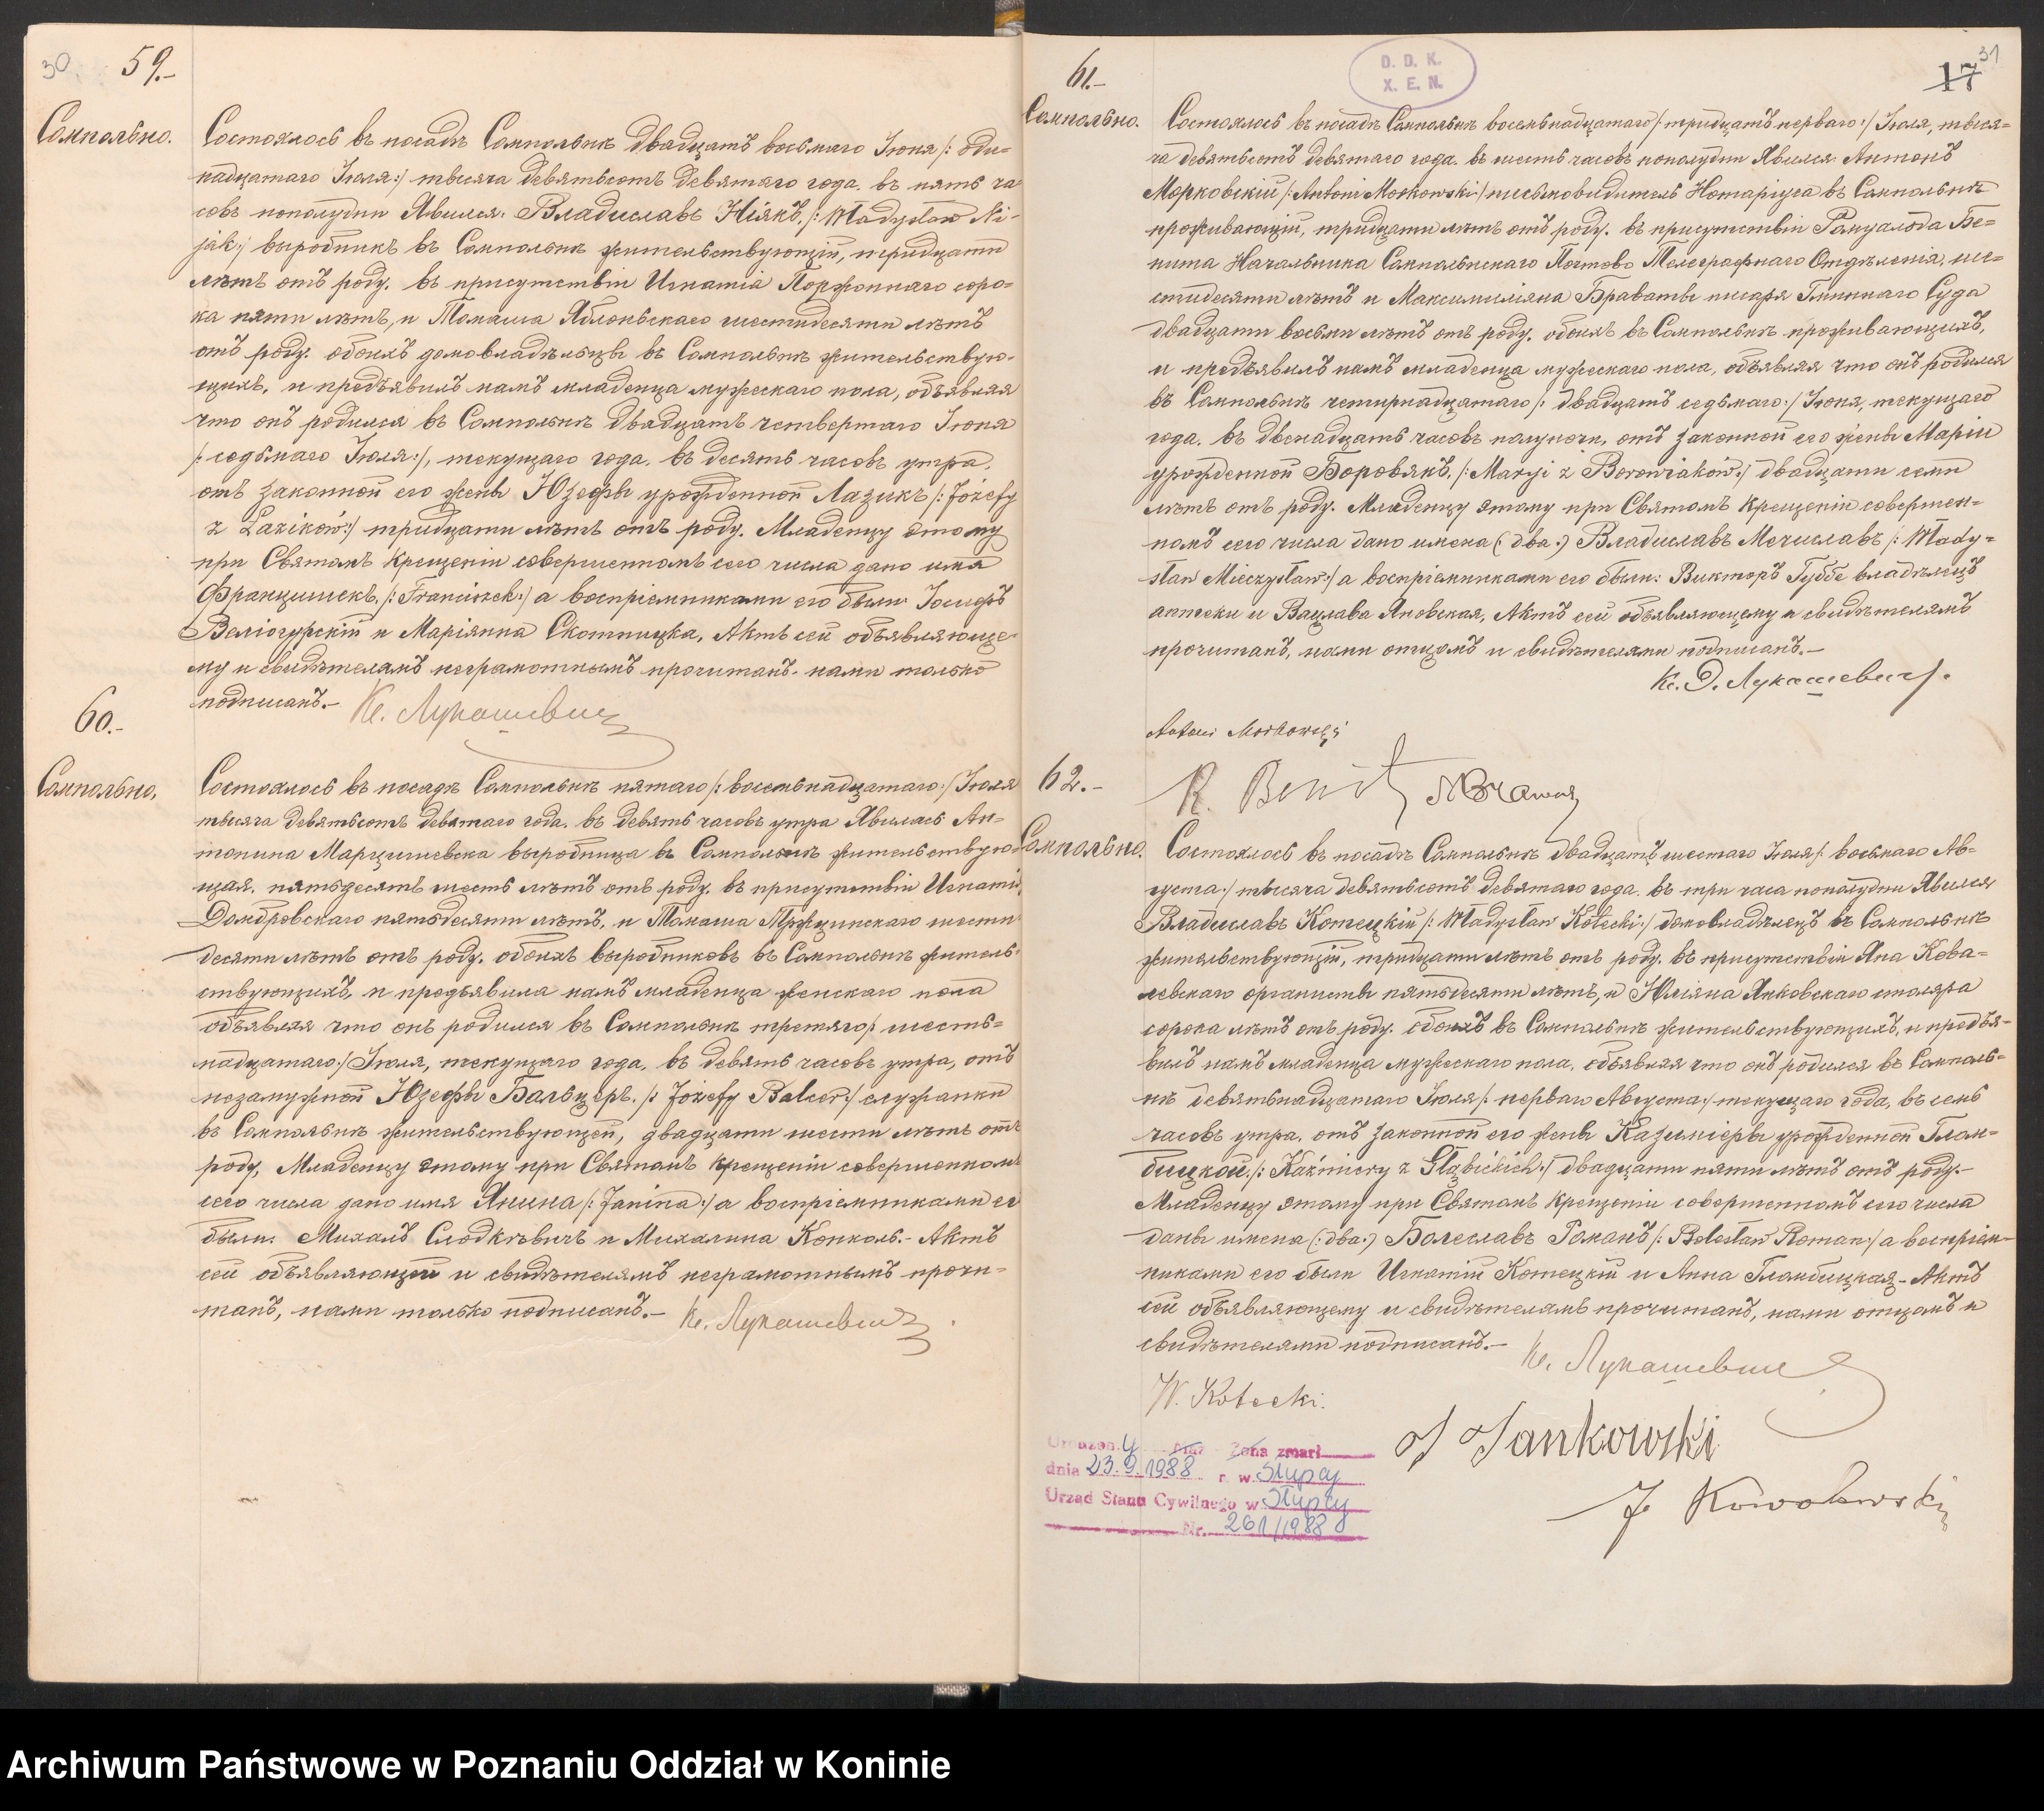 30
59.-
Сомпольно.
Состоялось въ посадѣ Сомпольнѣ двадцать восьмаго Іюня /: оди-
надцатаго Іюля:/ тысяча девятьсотъ девятаго года. въ пять ча
совъ пополудни Явился. Владиславъ Ніякъ, /: Władysław Ni-
jak:/ выробникъ въ Сомпольнѣ жительствующій, тридцати
лѣтъ отъ роду. въ присутствіи Игнатія Поржоннаго соро-
ка пяти лѣтъ, и Томаша Яблоньскаго шестидесяти лѣтъ
отъ роду. обоихъ домовладѣльцы въ Сомпольнѣ жительствую-
щихъ, и предъявилъ намъ младенца мужескаго пола, объявляя
что онъ родился въ Сомпольнѣ двадцать четвертаго Іюня
/: седьмаго Іюля:/, текущаго года. въ десять часовъ утра,
отъ законной его жены Юзефы урожденной Лазикъ /: Józefy
z Łazików:/ тридцати лѣтъ отъ роду. Младенцу этому
при Святомъ Крещеніи совершенномъ сего числа дано имя
Францишекъ. /: Franciszek:/ а воспріемниками его были Іосифъ
Веліогурскій и Маріянна Скотницка, Актъ сей объявляюще-
му и свидѣтелямъ неграмотнымъ прочитанъ. нами только
подписанъ.- Кс. Лукашевич
60.-
Сомпольно,
Состоялось въ посадѣ Сомпольнѣ пятаго /: восемьнадцатаго:/ Іюля
тысяча девятьсотъ девятаго года. въ девять часовъ утра Явилась Ан-
тонина Марцишевска выробница въ Сомпольнѣ жительствую-
щая, пятьдесятъ шесть лѣтъ отъ роду. въ присутствіи Игнатія
Домбровскаго пятьдесяти лѣтъ, и Томаша Тржцинскаго шести
десяти лѣтъ отъ роду. обоихъ выробниковъ въ Сомпольнѣ житель-
ствующихъ, и предъявила намъ младенца женскаго пола
объявляя что онъ родился въ Сомпольнѣ третяго /: шесть-
надцатаго:/ Іюля, текущаго года, въ девять часовъ утра, отъ
незамужной Юзефы Бальцеръ. /: Józefy Balcer:/ служанки
въ Сомпольнѣ жительствующей, двадцати шести лѣтъ отъ
роду, Младенцу этому при Святомъ Крещеніи совершенномъ
сего числа дано имя Янина /: Janina:/ а воспріемниками ег
были. Михалъ Слодкѣвичъ и Михалина Конколь.- Актъ
сей объявляющей и свидѣтелямъ неграмотнымъ прочи-
танъ, нами только подписанъ.- Кс. Лукашевич
D. D. K.
X. E. N.
31
17
61.-
Сомпольно.
Состоялось въ посадѣ Сомпольнѣ восемьнадцатаго /: тридцать перваго:/ Іюля, тыся-
ча девятьсотъ девятаго года. въ шесть часовъ пополудни Явился Антонъ
Морковскій /: Antoni Morkowski:/ письмовидитель Нотаріуса въ Сомпольнѣ
проживающій, тридцати лѣтъ отъ роду. въ присутствіи Ромуальда Бе-
нита Начальника Сомпольнскаго Почтово Телеграфнаго Отдѣленія, ше-
стидесяти лѣтъ и Максимиліяна Браваты писаря Гминнаго Суда
двадцати восьми лѣтъ отъ роду. обоихъ въ Сомпольнѣ проживающихъ,
и предъявилъ намъ младенца мужескаго пола, объявляя что онъ родился
въ Сомпольнѣ четырнадцатаго /: двадцать седьмаго:/ Іюня, текущаго
года. въ двенадцать часовъ полуночи, отъ законной его жены Маріи
урожденной Боровякъ, /: Maryi z Borowiaków:/ двадцати семи
лѣтъ отъ роду. Младенцу этому при Святомъ Крещеніи совершен-
номъ сего числа дано имена (: два:) Владиславъ Мечиславъ /: Włady-
sław Mieczysław:/ а воспріемниками его были: Викторъ Губбе владѣлецъ
аптеки и Вацлава Яновская, Актъ сей объявляющему и свидѣтелямъ
прочитанъ, нами отцомъ и свидѣтелями подписанъ.-
Кс. Д. Лукашевич.
Antoni Morkowski
R. Benit M Brawata
62.-
Сомпольно.
Состоялось въ посадѣ Сомпольнѣ двадцать шестаго Іюля /: восьмаго Ав-
густа:/ тысяча девятьсотъ девятаго года. въ три часа пополудни Явился
Владиславъ Котецкій /: Władysław Kotecki:/ домовладѣлецъ въ Сомпольнѣ
жительствующій, тридцати лѣтъ отъ роду. въ присутствіи Яна Кова-
левскаго органисты пятьдесяти лѣтъ, и Юліяна Янковскаго столяра
сорока лѣтъ отъ роду. обоихъ въ Сомпольнѣ жительствующихъ, и предъя-
вилъ намъ младенца мужескаго пола, объявляя что онъ родился въ Сомполь-
нѣ девятьнадцатаго Іюля /: перваго Августа:/ текущаго года, въ семь
часовъ утра. отъ законной его жены Казиміеры урожденной Глом-
бицкой. /: Kaźmiery z Głąbickich:/ двадцати пяти лѣтъ отъ роду.-
Младенцу этому при Святомъ Крещеніи совершенномъ сего числа
даны имена (: два:) Болеславъ Романъ /: Bolesław Roman:/ а воспріем-
никами его были Игнатій Котецкій и Анна Гломбицкая.- Актъ
сей объявляющему и свидѣтелямъ прочитанъ, нами отцомъ и
свидѣтелями подписанъ.- Кс. Лукашевич
W. Kotecki.
J Jankowski
J Kowalewski
Urodzon.y Mąż Żona zmarł
dnia 23.9.1988 r. w Słupcy
Urząd Stanu Cywilnego w Słupcy
Nr. 261/1988
Archiwum Państwowe w Poznaniu Oddział w Koninie